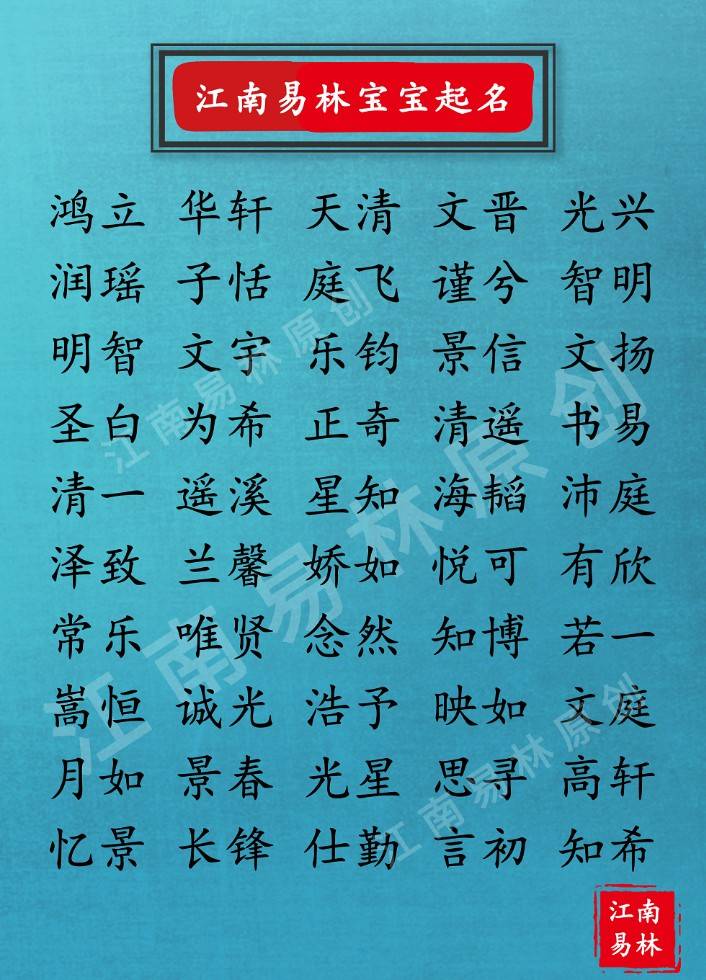 江南易林宝宝起名
鸿立 华轩 天清 文晋 光兴
润瑶 子恬 庭飞 谨兮 智明
明智 文宇 乐钧 景信 文扬
圣白 为希 正奇 清遥 书易
清一 遥溪 星知 海韬 沛庭
泽致 兰馨 娇如 悦可 有欣
常乐 唯贤 念然 知博 若一
嵩恒 诚光 浩予 映如 文庭
月如 景春 光星 思寻 高轩
忆景 长锋 仕勤 言初 知希
江南易林原创
江南易林原创
江南易林原创
江南
易林